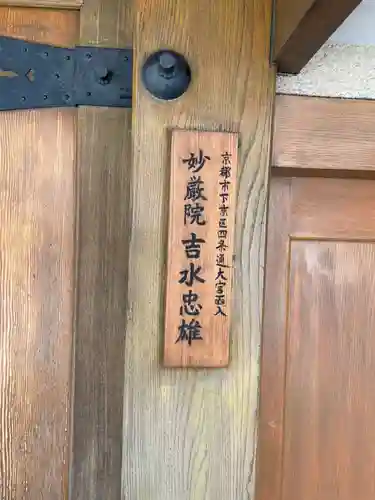 京都市下京区四条通大宮西入
妙厳院 吉水忠雄